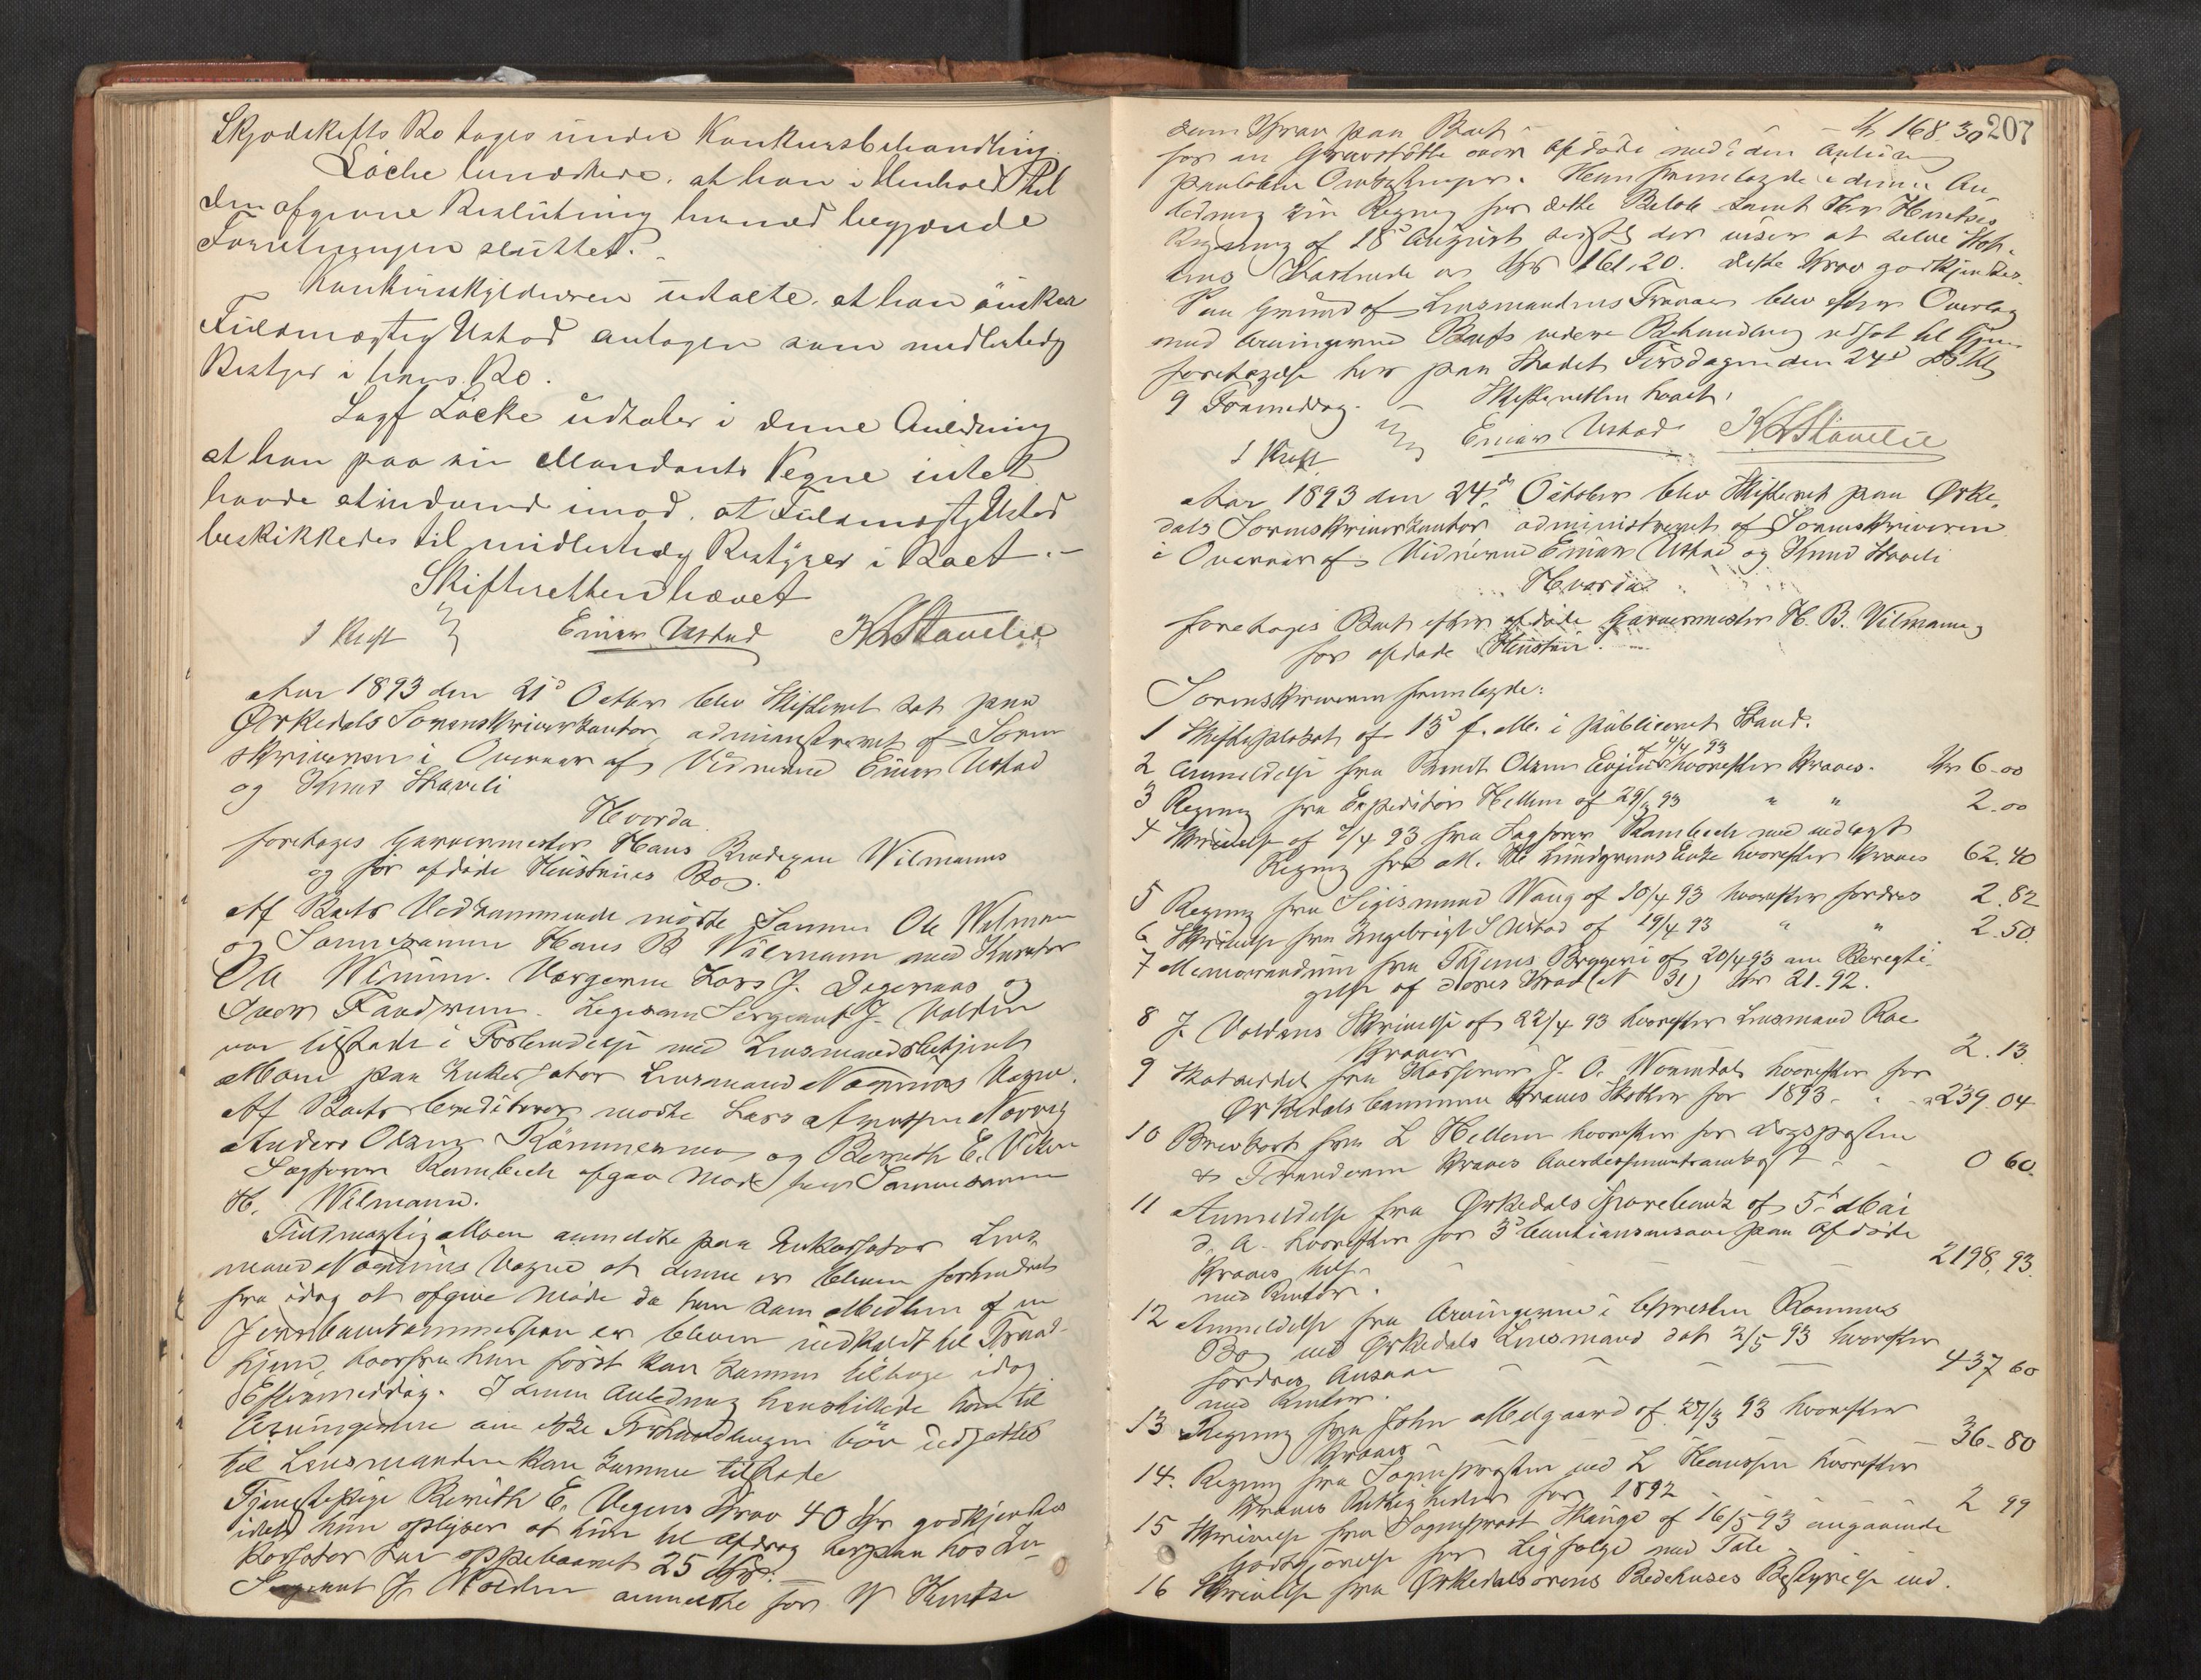 Skjødskifts Bo tages under Konkursbehandling.
Löcke bemærkede, at han i Henhold til
den afgivne Beslutning hermed begjærede
Forretningen sluttet.
Konkursskyldneren udtalte, at han önsker
Fuldmægtig Ustad antagen som midlertidig
Bestyrer i hans Bo.
Sagf Löcke udtaler i denne Anledning
at han paa sin Mandants Vegne intet
havde at indvende imod, at Fuldmægtig Ustad
beskikkedes til midlertidig Bestyrer i Boet.-
Skifteretten hævet
J Kraft Einar Ustad K L Stavelie
Aar 1893 den 21d Octbr blev Skifteret sat paa
Ørkedals Sorenskriverkontor, administreret af Soren
skriveren i Overvær af Vidnerne Einar Ustad
og Knud Staveli
Hvorda
foretoges Garvermester Hans Wilmanns
og før afdöde Hustrues Bo.
Af Boets Vedkommende mödte Sönnen Ole Wilmann
og Sönnesönnen Hans B Wilmann med Kurator
Ole Vergerne Lars J. og
Iver . Sergeant J. Volden
var tilstede i Forbindelse med Lensmandsbetjent
Moen paa Inkassator Lensmand Vegne.
Af Boets Creditorer mødte Lars
Anders Olsen og Bereth E.
Sagförer Rambech afgav Møde for Sönnesönnen
H. Wilmann.
Fuldmægtig Moen anmeldte paa Inkassator Lens
mand Vegne at denne er bleven forhindret
fra idag at afgive Möde da han som Medlem af en
er bleven indkaldt til Trond-
hjem, hvorfra han först kan komme tilbage idag
Eftermiddag. I denne Anledning henstillede han til
Arvingerne om ikke Forhandlingen bör udsættes
til Lensmanden kan komme tilstede
Tjenestepige Bereth E. Krav 40 Kr godkjendtes
idet hun oplyser at hun til Afdrag herpaa hos In-
kassator har oppebaaret 25 Kr.
Sergeant J. Volden anmeldte for W Huntze
207
dem Krav paa Boet Kr 168.30
for en Gravstötte over afdöde med i den Anledning
paaløbne Omkostninger. Han fremlagde i denne An
ledning sin Regning for dette Beløb samt Hr Huntzes
Regning af 18d August der viser at selve Stöt-
tens Kostende er Kr 161,20. Dette Krav godkjendtes.
Paa Grund af Lensmandens Fravær blev efter Overlæg
med Arvingerne Boets videre Behandling udsat til Gjen-
foretagelse her paa Stedet Tirsdagen den 24d ds Kl
9 Formiddag. - Skifteretten hævet.
J Kraft Einar Ustad K L Stavelie
Aar 1893 den 24de October blev Skifteret paa Ørke
dals Sorenskriverkontor administreret af Sorenskriveren
i Overvær af Vidnerne Einar Ustad og Knud Staveli
Hvorda
foretoges Boet efter afdöde Garvermester H. B. Wilmann og
før afdöde Hustru.
Sorenskriveren fremlagde:
1 af 13d f. M. i publiceret Stand.
2 Anmeldelse fra Bendt Olsen af 4/4 93 hvorefter kræves. Kr 6-00
3 Regning fra Expeditör Hellem af 29/3 93 " " 2.00
4 Skrivelse af 7/4 93 fra Sagförer Rambech med vedlagt
Regning fra M. H. Lundgrens Enke hvorefter kræves 62.40
5 Regning fra Sigismund Waug af 10/4 93 hvorefter fordres 2.82
6 Skrivelse fra Ingebrigt S Ustad af 19/4 93 " " 2.50
7 Memorandum fra Bryggeri af 20/4 93 om Berigti-
gelse af deres Krav (N 31) Kr 21.92.
8 J. Voldens Skrivelse af 22/4 93 hvorefter Lensmand Roe
kræver 2.13
9 Skatseddel fra Kasserer J. O. hvorefter for
Ørkedals Commune kræves Skatten for 1893 - - " 239.04
10 Brevkort fra L Hellem hvorefter for Dagsposten
& Tronderen kræves Avertissementsomkost - - 0 60
11 Anmeldelse fra Ørkedals Sparebank af 5te Mai
d. A. hvorefter for 3de Cautionsansvar paa Afdöde
kræves 2198.93.
med Renter.
12 Anmeldelse fra Arvingerne i
Bo ved Ørkedals Lensmand dat 2/5 93 hvorefter
fordres Ansvar - - - 437 60
med Renter.
13 Regning fra John Melgaard af 27/3 93 hvorefter
kræves - - 36-80
14. Regning fra Sognepresten ved L Hanssen hvorefter
kræves for 1892 2 99
15 Skrivelse fra Sogneprest af 16/5 93 angaaende
Godtgjörelse for Ligfølge med Tale
16 Skrivelse fra Ørkedalsörens Bedehuses Bestyrelse ind.